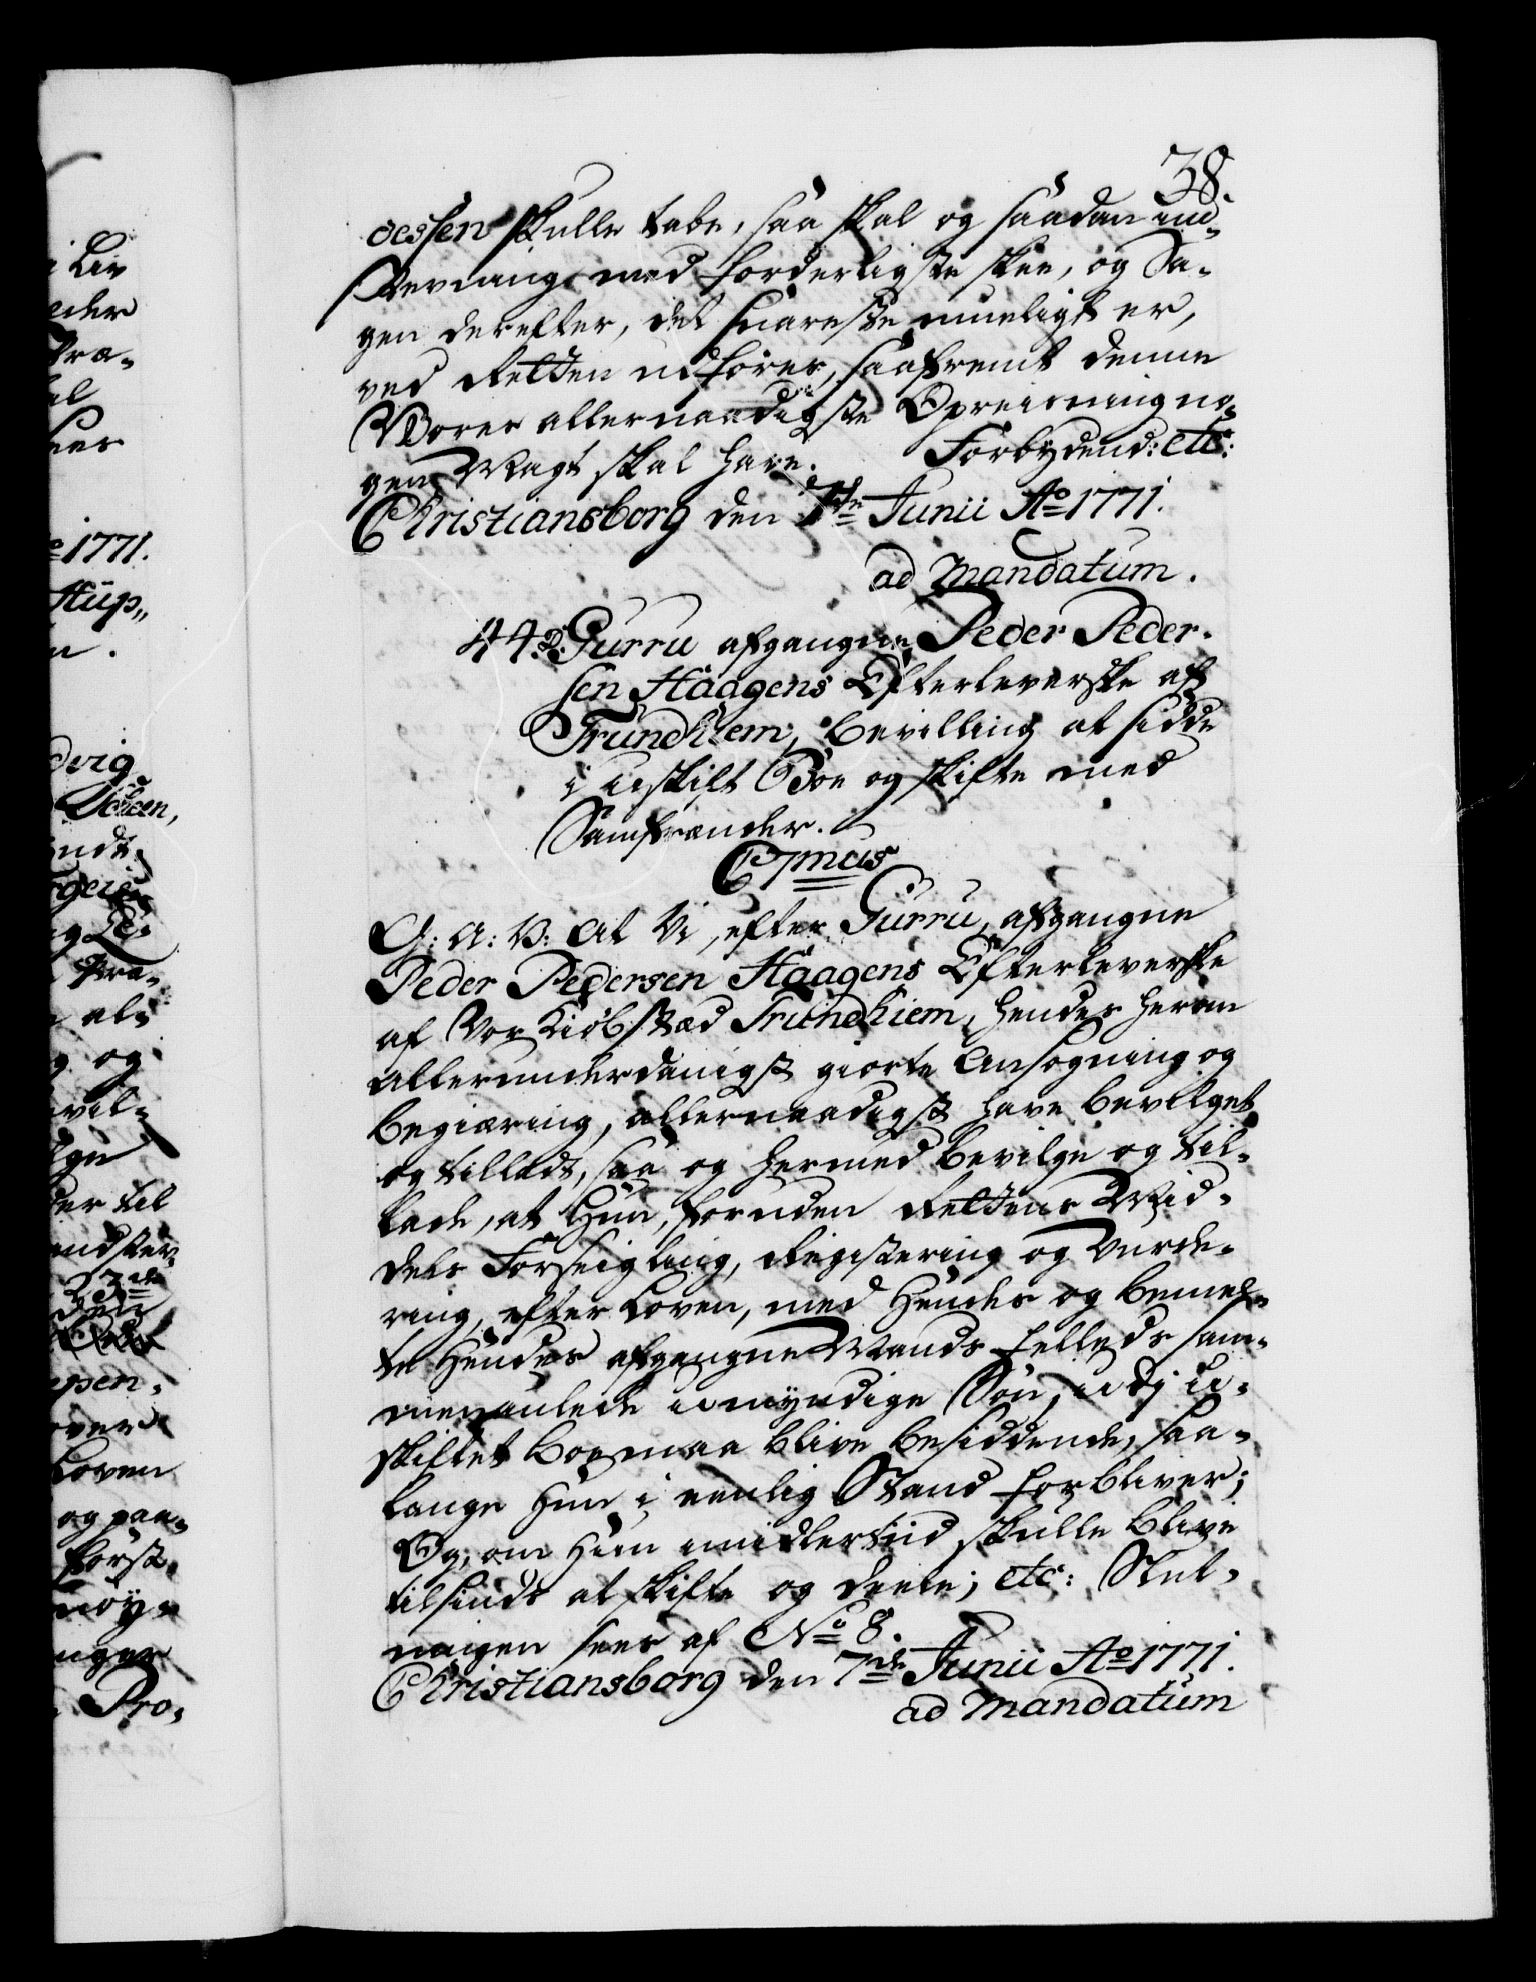 38.
cessen skulle tabe, saa skal og saadan ind-
stevning med forderligste skee, og Sa-
gen derefter, det snareste mueligt er,
ved Retten udføres, saafremt denne
Vores allernaadigste Opreisning no-
gen Magt skal have. Forbydend: etc:
Christiansborg den 7de Junii Ao 1771.
ad Mandatum.
44. Gurru afgangne Peder Peder-
sen Haagens Efterleverske af
Trundhiem, bevilling at sidde
i uskift Boe og skifte med
Samfrænder.
C7mus
G: A: V: At Vi, efter Gurru, afgangne
Peder Pedersen Haagens Efterleverske
af Vor Kiøbstæd Trundhiem, hendes herom
allerunderdanigst giorte Ansøgning og
begiæring, allernaadigst have bevilget
og tilladt, saa og hermed bevilge og til-
lade, at Hun, foruden Rettens Mid-
dels Forseigling, Registering og Vurde-
ring, efter Loven, med Hendes og bemel-
te Hendes afgangne Mands fælleds sam-
menaulede umyndige Søn, udj U-
skiftet boe maa blive besiddende, saa-
lenge Hun i eenlig Stand forbliver;
Og, om Hun imidlertiid skulle blive
tilsinds at skifte og deele; etc: Slut-
ningen sees af No 8.
Christiansborg den 7de Junii Ao 1771.
ad Mandatum